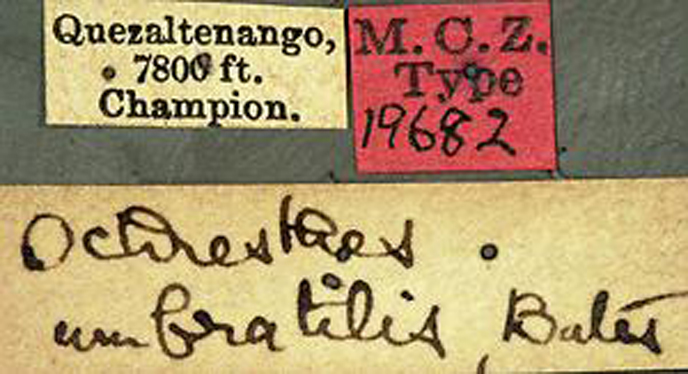 Quezaltenango,
7800 ft.
Champion.
M. C. Z.
Type
19682
Ochresthes
umbratilis, Bates